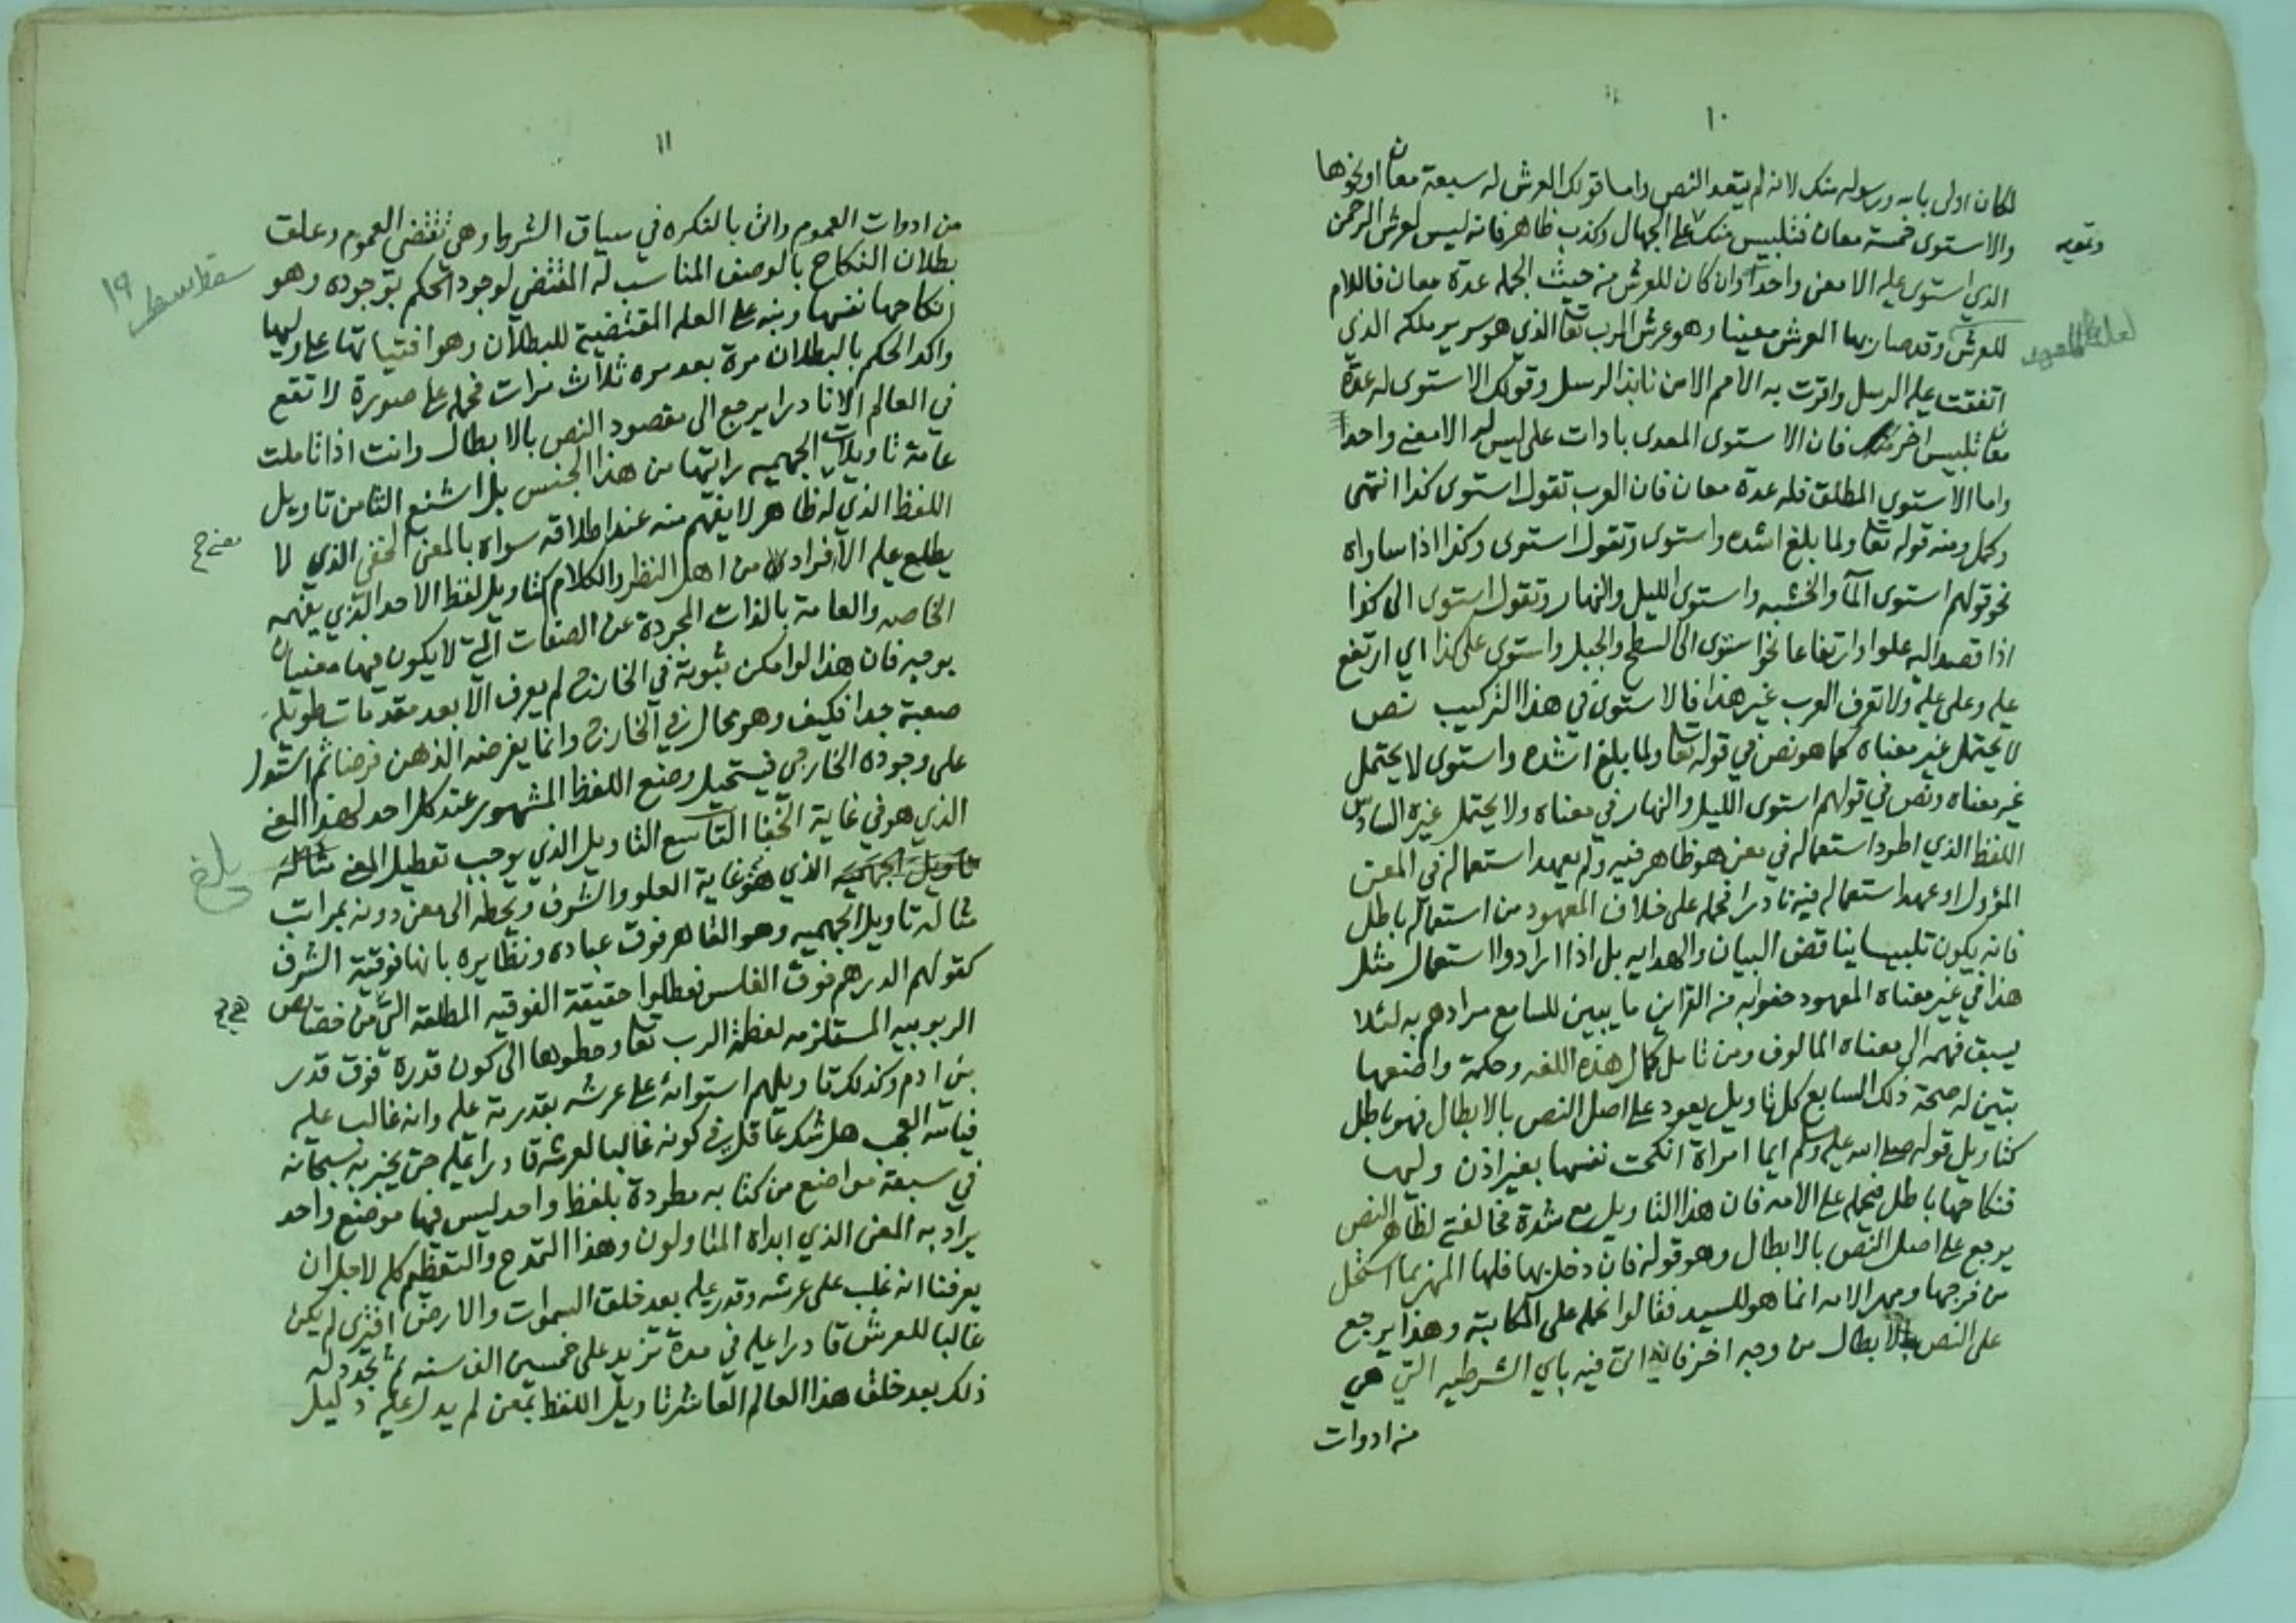 ١٠
لكان اولى بالله ورسوله منك لانه لم يتعد النص واما قولك العرش له سبعة معان او نحوها
والاستوى خمسة معان فتلبيس منك على الجهال وكذب ظاهر فانه ليس لعرش الرحمن
وتمويه
الذي استوى عليه الا معنى واحدا وان كان للعرش من حيث الجمله عدة معان فاللام
للعرش وقد صار بها العرش معينا وهو عرش الرب تعا الذي هو سرير ملكه الذي
لعله للعهد
اتفقت عليه الرسل واقرت به الامم الا من نابذ الرسل وقولك الاستوى له عدة
معان تلبيس اخر منك فان الاستوى المعدى بادات على ليس له الا معنى واحدا
واما الاستوى المطلق فله عدة معان فان العرب تقول استوى كذا انتهى
وكمل ومنه قوله تعا ولما بلغ اشده واستوى وتقول استوى وكذا اذا ساواه
نحو قولهم استوى المآ والخشبه واستوى الليل والنهار وتقول استوى الى كذا
اذا قصد اليه علوا وارتفاعا نحو استوى الى السطح والجبل واستوى على كذا اي ارتفع
عليه وعلى عليه ولا تعرف العرب غير هذا فالاستوى في هذا التركيب نص
لا يحتمل غير معناه كما هو نص في قوله تعا ولما بلغ اشده واستوى لا يحتمل
غير معناه ونص في قولهم استوى الليل والنهار في معناه ولا يحتمل غيره السادس
اللفظ الذي اطرد استعماله في معنى هو ظاهر فيه ولم يعهد استعماله في المعنى
المؤول او عهد استعماله فيه نادرا فحمله على خلاف المعهود من استعماله باطل
فانه يكون تلبيسا يناقض البيان والهدايه بل اذا ارادوا استعمال مثل
هذا في غير معناه المعهود حفوا به من القراين ما يبين للسامع مرادهم به لئلا
يسبق فهمه الى معناه المالوف ومن تامل كمال هذه اللغه وحكمة واضعها
تبين له صحة ذلك السابع كل تاويل يعود على اصل النص بالابطال فهو باطل
كتاويل قوله صلى الله عليه وسلم ايما امراة انكحت نفسها بغير اذن وليها
فنكاحها باطل فحمله على الامه فان هذا التاويل مع شدة مخالفته لظاهر النص
يرجع على اصل النص بالابطال وهو قوله فان دخل بها فلها المهر بما استحل
من فرجها ومهر الامه انما هو للسيد فقالوا نحمله على المكاتبة وهذا يرجع
على النص بالابطال من وجه اخر فانه اتى فيه باي الشرطيه التي هي
من ادوات
١١
من ادوات العموم واتى بالنكره في سياق الشرط وهي تقتضي العموم وعلق
بطلان النكاح بالوصف المناسب له المقتضي لوجود الحكم بوجوده وهو
١٩
انكاحها نفسها ونبه على العله المقتضية للبطلان وهو افتياتها على وليها
واكد الحكم بالبطلان مرة بعد مره ثلاث مرات فحمله على صورة لا تقع
في العالم الا نادرا يرجع الى مقصود النص بالابطال وانت اذا تاملت
عامة تاويلات الجهميه رايتها من هذا الجنس بل اشنع الثامن تاويل
اللفظ الذي له ظاهر لا يفهم منه عند اطلاقه سواه بالمعنى الخفي الذي لا
يطلع عليه الا فرادى من اهل النظر والكلام كتاويل لفظ الاحد الذي يفهمه
الخاصه والعامة بالذات المجردة عن الصفات التي لا يكون فيها معنيان
بوجه فان هذا لو امكن ثبوته في الخارج لم يعرف الا بعد مقدمات طويله
صعبة جدا فكيف وهو محال في الخارج وانما يفرضه الذهن فرضا ثم استدل
على وجوده الخارجي فيستحيل وضع اللفظ المشهور عند كل احد لهذا المعنى
الذي هو في غاية الخفا التاسع التاويل الذي يوجب تعطيل المعنى
الذي هو غاية العلو والشرف ويحطه الى معنى دونه بمراتب
بلغ
مثاله تاويل الجهميه وهو القاهر فوق عباده ونظايره بانها فوقية الشرف
كقولهم الدرهم فوق الفلس فعطلوا حقيقة الفوقيه المطلقة التي من خصايص
الربوبيه المستلزمه لعظمة الرب تعا وحطوها الى كون قدره فوق قدر
بني ادم وكذلك تاويلهم استوائه على عرشه بقدرته عليه وانه غالب عليه
فيالله العجب هل شك عاقل في كونه غالبا لعرشه قادرا عليه حتى يخبر به سبحانه
في سبعة مواضع من كتابه مطردة بلفظ واحد ليس فيها موضع واحد
يراد به المعنى الذي ابداه المتاولون وهذا التمدح والتعظيم كله لاجل ان
يعرفنا انه غلب على عرشه وقدر عليه بعد خلق السموات والارض افترى لم يكن
غالبا للعرش قادرا عليه في مدة تزيد على خمسين الف سنه ثم تجدد له
ذلك بعد خلق هذا العالم العاشر تاويل اللفظ بمعنى لم يدل عليه دليل